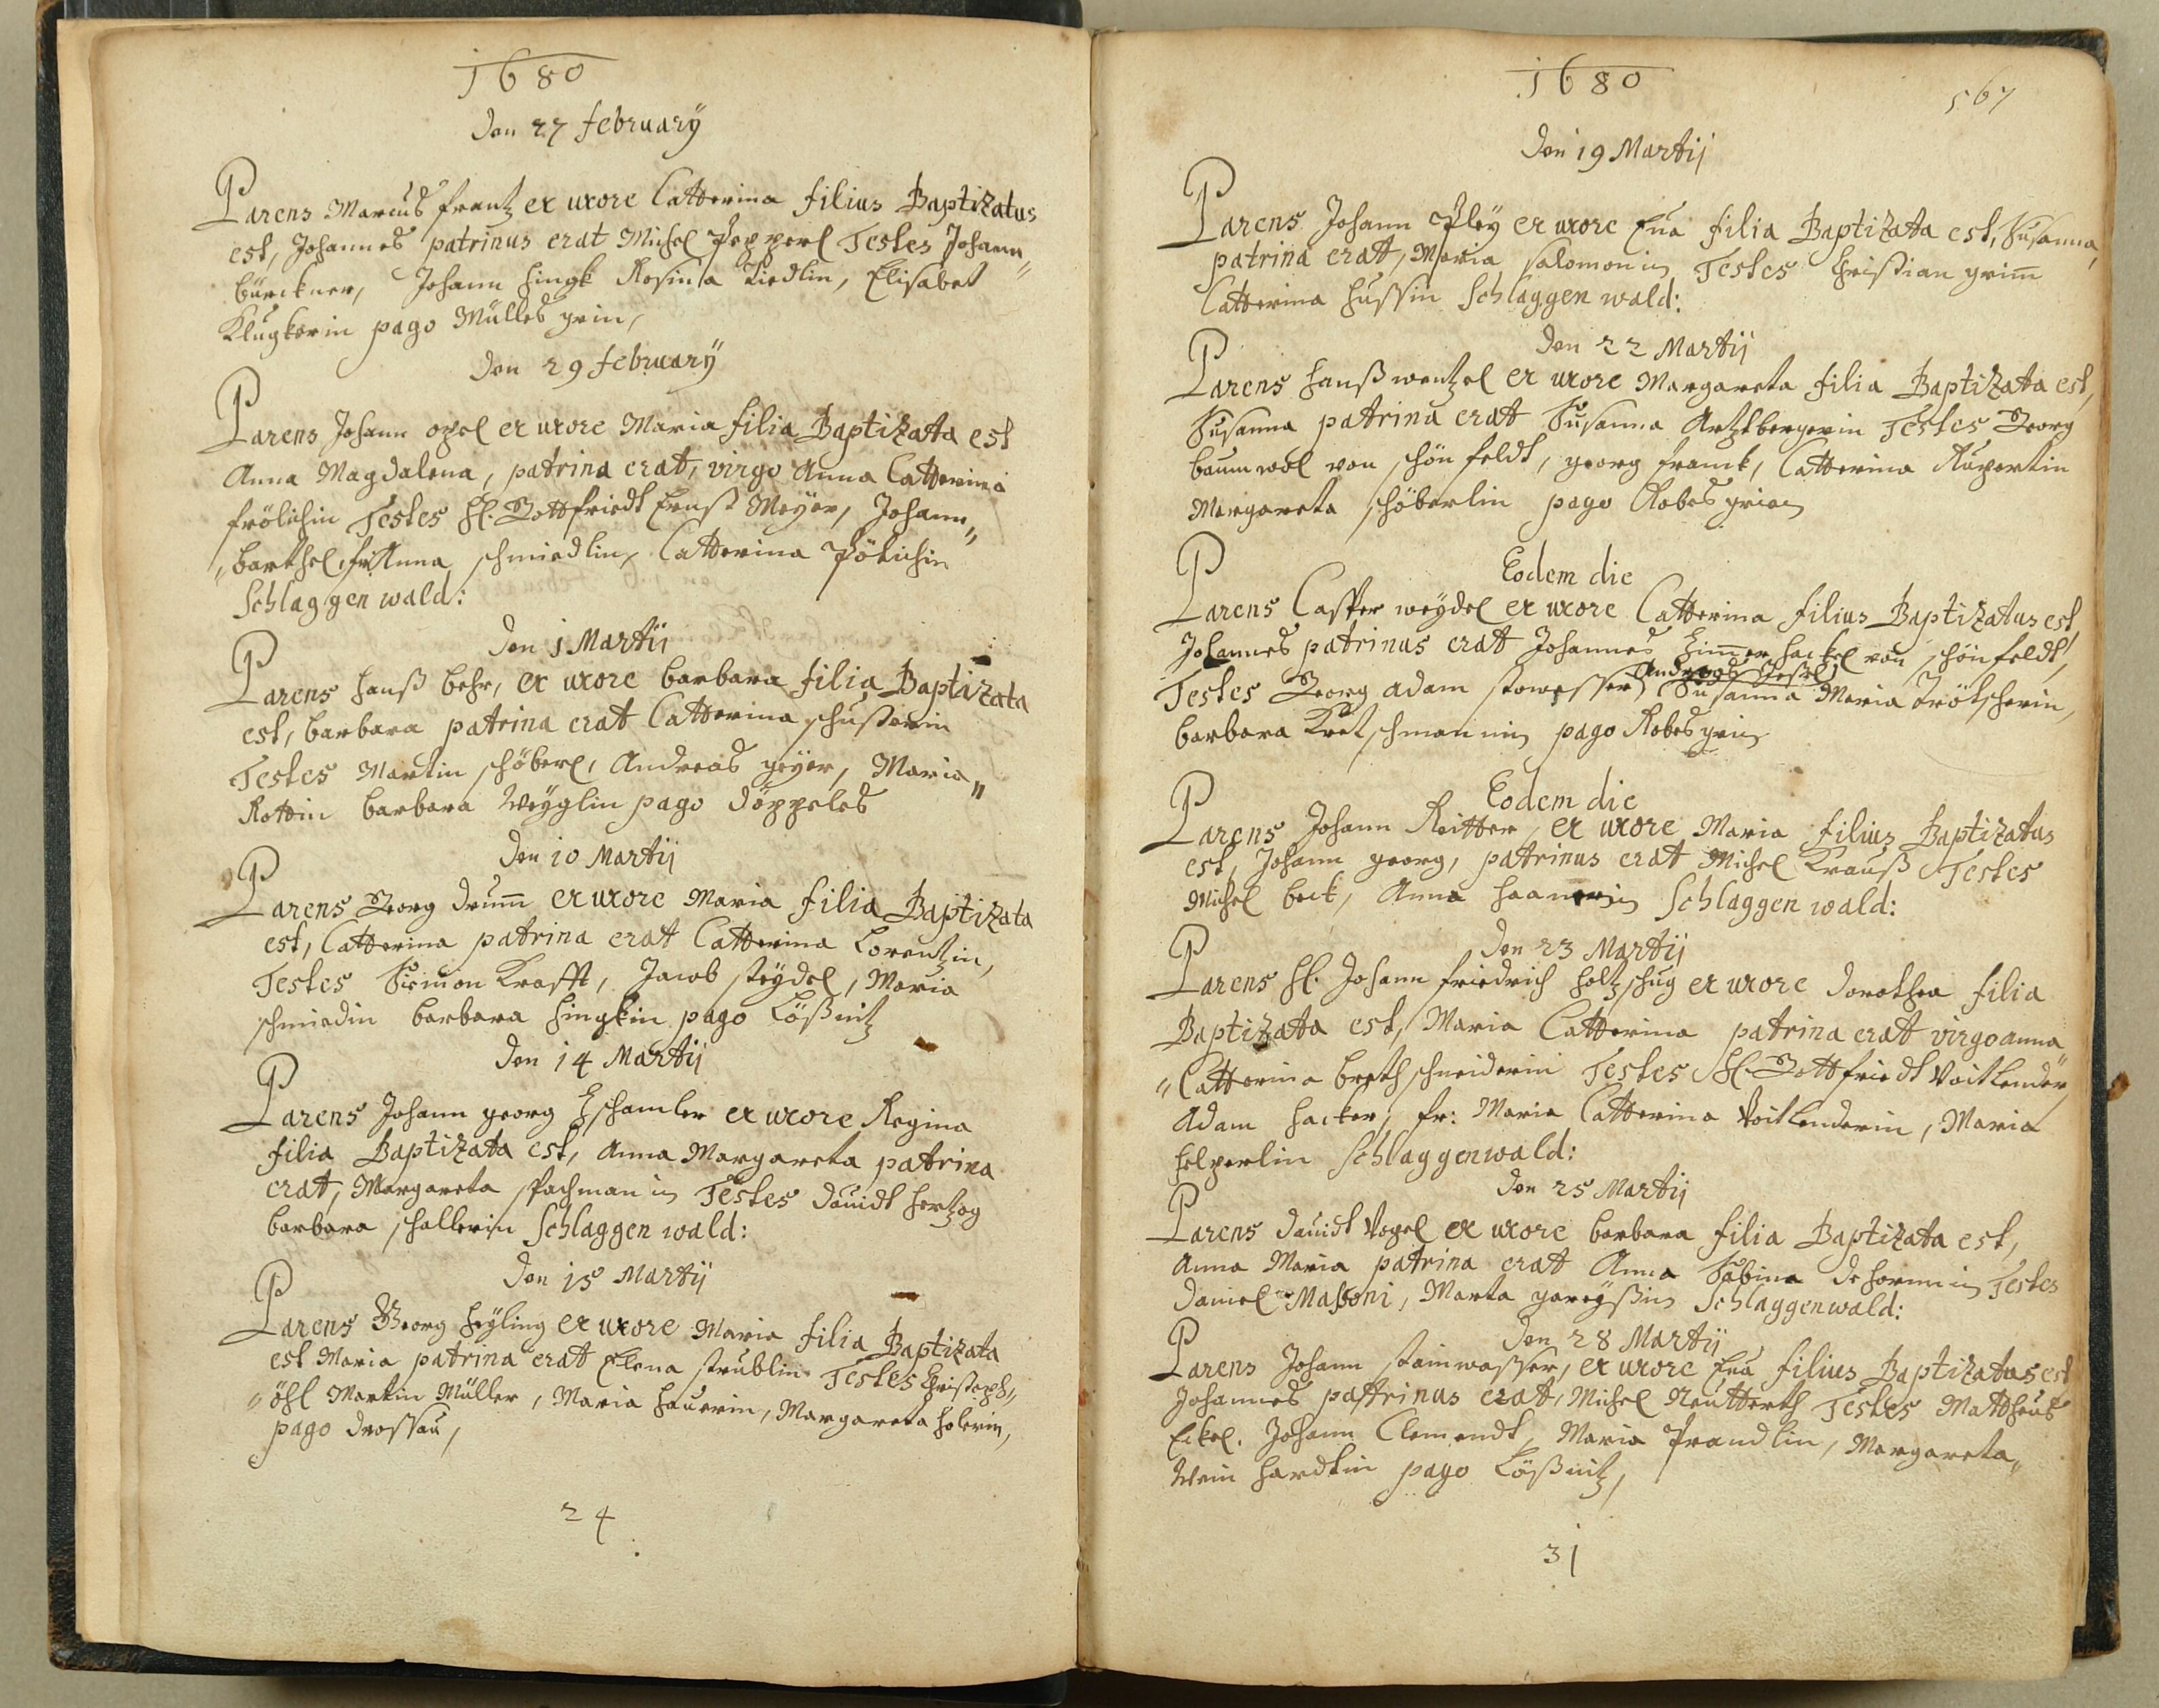 1680
Den 27 february
Parens Marcus frantz ex uxore Catterina filius Baptizatus
est, Johannes patrinus erat Michel Popperl Testes Johann„
bürckner, Johann hingk Rosinsa Riedlin, Elisabet
Klugkerin pago Mülles grün,
Den 29 february
Parens Johann opel ex uxore Maria filia Baptizata est
Anna Magdalena, patrina erat, virgo Anna Catterina
frölichin Testes H: Gottfriedt Ernst Meyer, Johann„
„barthel, fr: Anna schmiedlin, Catterina Pötichin
Schlaggen wald:
Den 1 Martij
Parens hanß behr, ex uxore barbara filia Baptizata
est, barbara patrina erat Catterina schusterin
Testes Martin schöberl, Andreas geyer, Maria„
Rottin barbara Weyglin pago döppeles
Den 10 Martij
Parens Georg drum̅ ex uxore Maria filia Baptizata
est, Catterina patrina erat Catterina Lorentzin,
Testes Siemon Krafft, Jacob steydel, Maria
schmiedin barbara hingkin pago Lößnitz
Den 14 Martij
Parens Johann georg Tschamler ex uxore Regina
filia Baptizata est, Anna Margareta patrina
erat, Margareta stachmanin Testes dauidt hertzog
barbara schallerin Schlaggen wald:
Den 15 Martij
Parens Georg heyling ex uxore Maria filia Baptizata
est Maria patrina erat Elena strüblin Testes Christoph„
„öhl Martin Müller, Maria hauerin, Margareta holerin,
pago drossau,
24
1680
567
Den 19 Martij
Parens Johann Pley ex uxore Eua filia Baptizata est, Susanna,
patrina erat, Maria Salomonin Testes Christian grim̅
Catterina hussin Schlaggen wald:
Den 22 Martij
Parens hanß wentzel ex uxore Margareta filia Baptizata est,
Susanna patrina erat Susanna Artztbergerin Testes Georg
baumwol von schönfeldt, georg franck, Catterina Rupertin
Margareta schöberlin pago Robesgrün
Eodem die
Parens Casper weydel ex uxore Catterina filius Baptizatus est
Johannes patrinus erat Johannes him̅erhackel von schönfeldt,
Andreas
Testes Georg adam stowesser, Susanna Maria Trötscherin,
barbara Kretschmanin pago Robesgrün
Eodem die
Parens Johann Reitter, ex uxore Maria filius Baptizatus
est, Johann georg, patrinus erat Michel Krauß Testes
Michel beck, Anna haanerin Schlaggen wald:
Den 23 Martij
Parens H: Johann friedrich holtzschug ex uxore dorothea filia
Baptizata est, Maria Catterina patrina erat virgo anna„
„Catterina brethschneiderin Testes H: Gottfriedt Voitlender,
Adam hacker, fr: Maria Catterina Voitlenderin, Maria
helperlin Schlaggenwald:
Den 25 Martij
Parens dauidt Vogel ex uxore barbara filia Baptizata est,
Anna Maria patrina erat Anna Sabina dehormin Testes
Daniel Massoni, Marta gareyßin Schlaggenwald:
Den 28 Martij
Parens Johann stainwasser, ex uxore Eua filius Baptizatus est
Johannes patrinus erat, Michel Neutterth Testes Mattheus
Eckel. Johann Clemendt, Maria Prandlin, Margareta„
Weinhardtin pago Lößnitz,
31